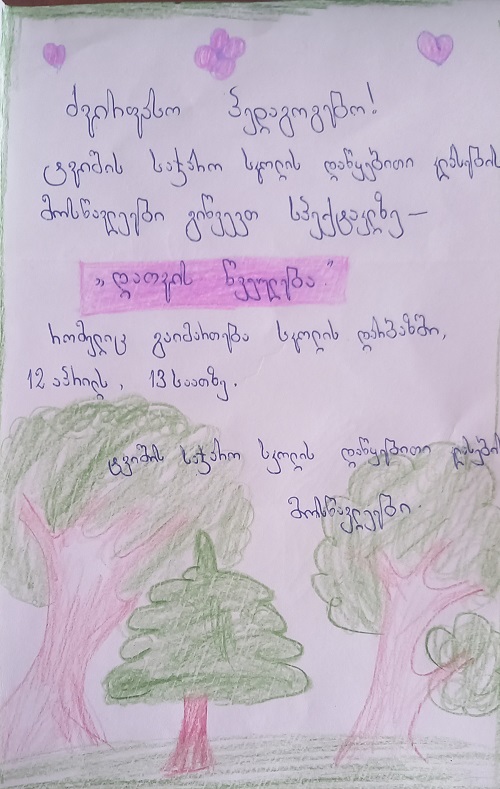 ძვირფასო პედაგოგებო!
ტვიშის საჯარო სკოლის დაწყებითი კლასების
მოსწავლეები გიწვევთ სპექტაკლზე –
„დათვის წვეულება"
რომელიც გაიმართება სკოლის დარბაზში,
12 აპრილს, 13 საათზე.
ტვიშის საჯარო სკოლის დაწყებითი კლასების
მოსწავლეები.